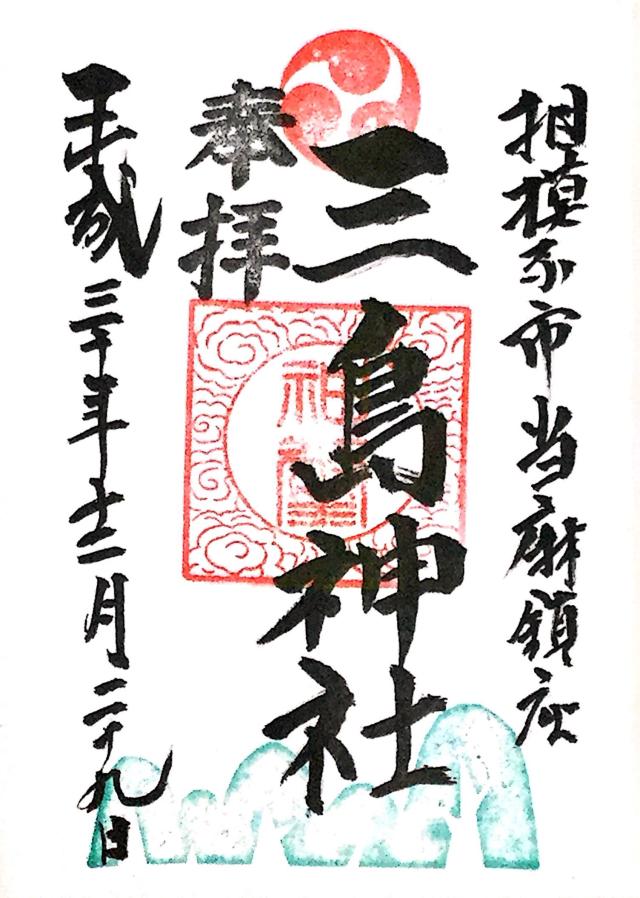 相模原市当麻鎮座
三島神社
奉拝
平成三十年十二月二十九日